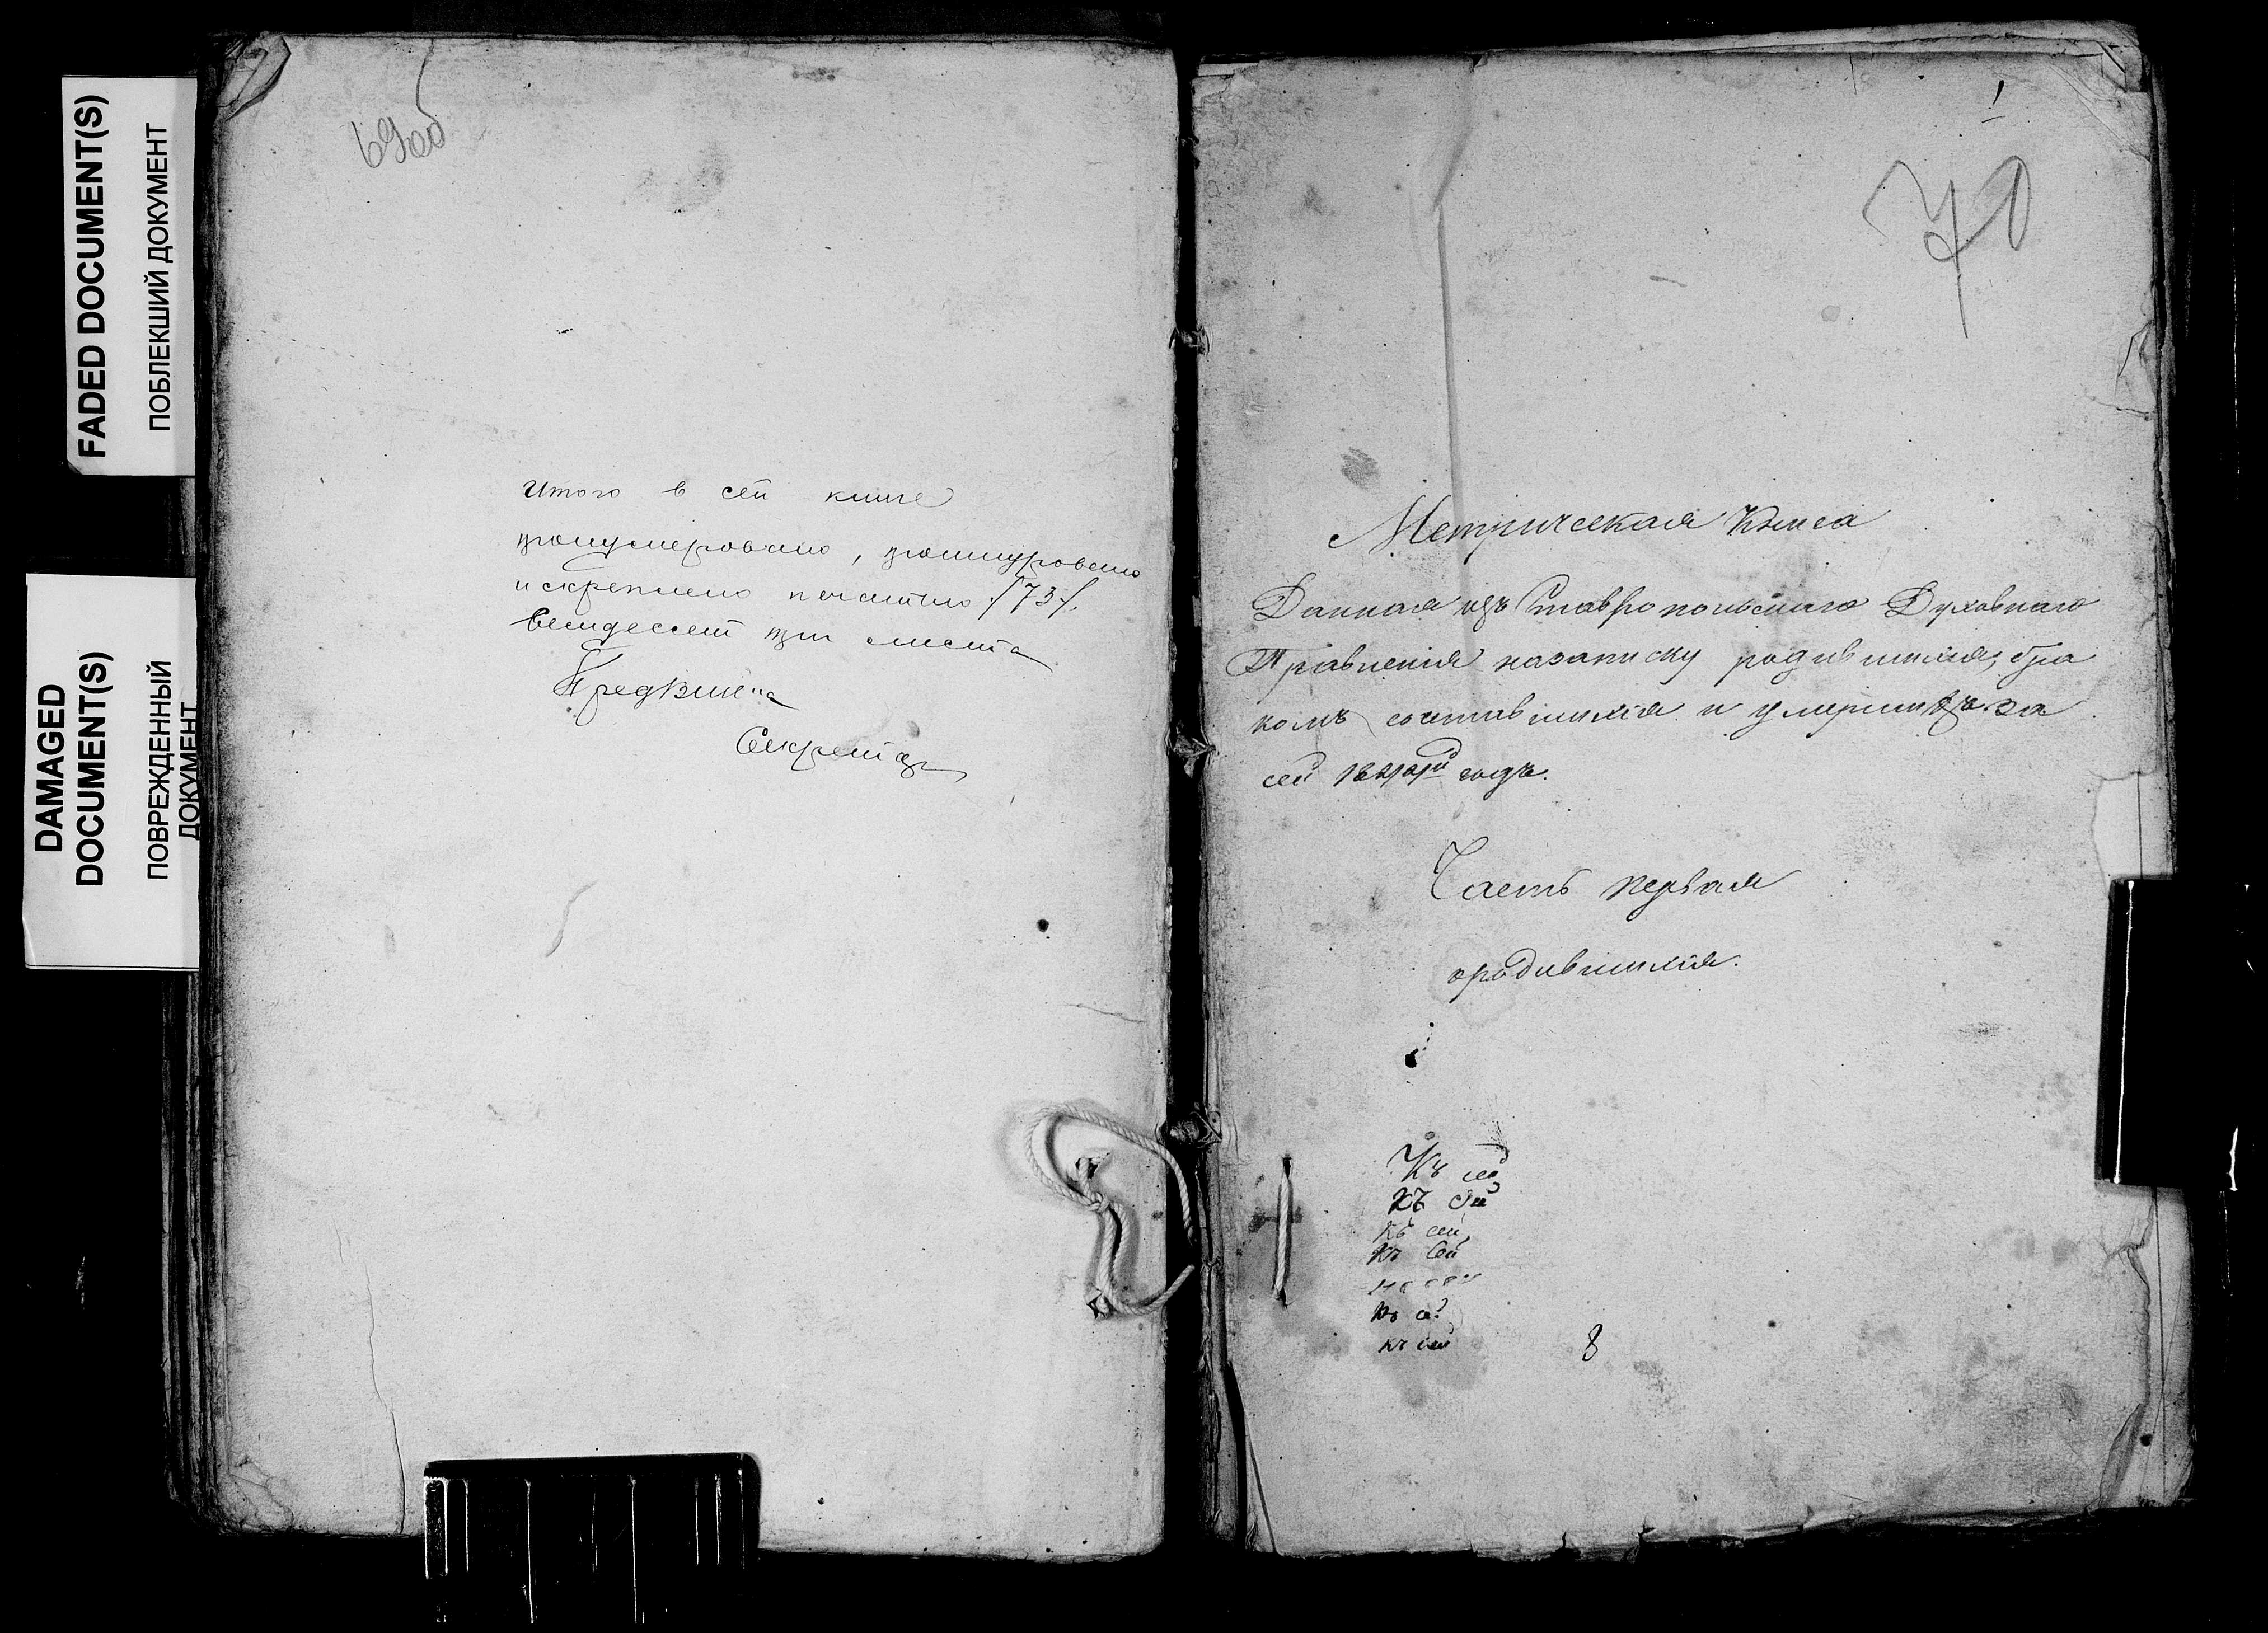 FADED DOCUMENT(S)
ПОБЛЕКШИЙ ДОКУМЕНТ
DAMAGED
DOCUMENT(S)
ПОВРЕЖДЕННЫЙ
ДОКУМЕНТ
69об
Итого в сей книге
пронумеровано, прошнуровано
и скреплено печатью /73/.
семдесят три листа
Секретарь
1
70
Метрическая Книга
Данная изъ Ставропольскаго Духовнаго
Правленія назаписку родившихся, бра
комъ сочетавшихся и умершихъ за
сей годъ.
Часть первая
ородившихся.
Къ сей
Къ сей
Къ сей
Къ Сей
Къ се
къ сей
8